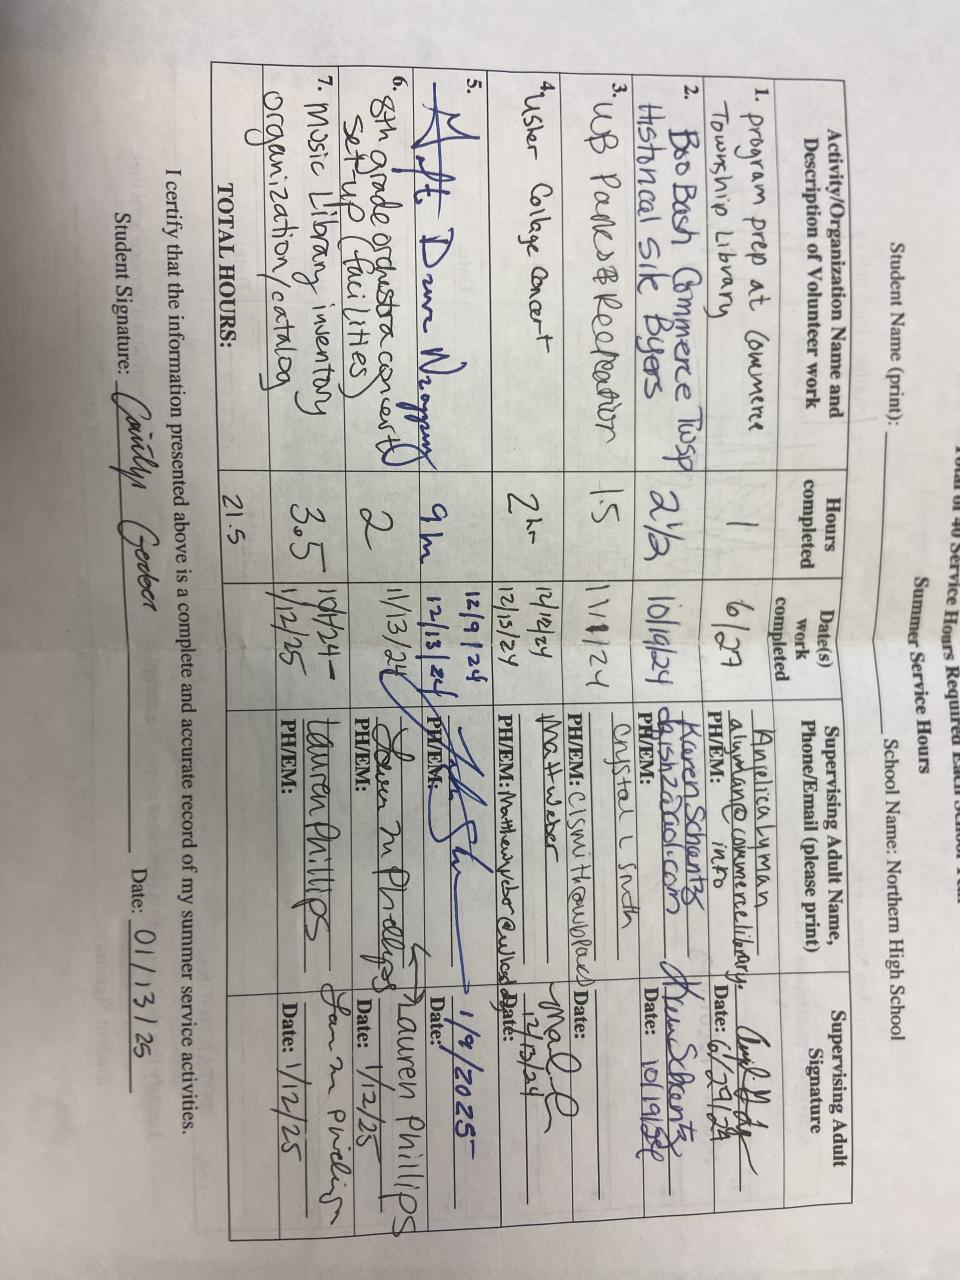 Total of 40 Service Hours Required Each School Year
Summer Service Hours
Student Name (print): School Name: Northern High School
Activity/Organization Name and Description of Volunteer work
Hours completed
Date(s) work completed
Supervising Adult Name, Phone/Email (please print)
Supervising Adult Signature
1. program prep at Commerce
Township Library
1
6/27
Anjelica Lyman
alyman@commercelibrary.
PH/EM: info
Date: 6/27/24
2. Boo Bash Commerce Twsp
Historical Silk Byers
2 1/2
10/19/24
Karen Schentz
PH/EM:
Karen Schentz
Date: 10/19/24
3. WB Parks & Recreation
1.5
11/1/24
Crystal L Smith
PH/EM:
Date:
4. Usher Collage Concert
2 hr
12/12/24
12/13/24
Matt Weber
PH/EM:
Date:
12/13/24
5.
9 hr
12/9/24
12/13/24
PH/EM:
1/9/2025
Date:
6. 8th grade orchestra concert
set-up (facilities)
2
11/13/24
Lauren M Phillips
PH/EM:
Lauren Phillips
Date: 1/12/25
7. Music Library inventory
organization/catalog
3.5
1/12/25
Lauren Phillips
PH/EM:
Date: 1/12/25
TOTAL HOURS: 21.5
I certify that the information presented above is a complete and accurate record of my summer service activities.
Student Signature: Caitlyn Date: 01/13/25